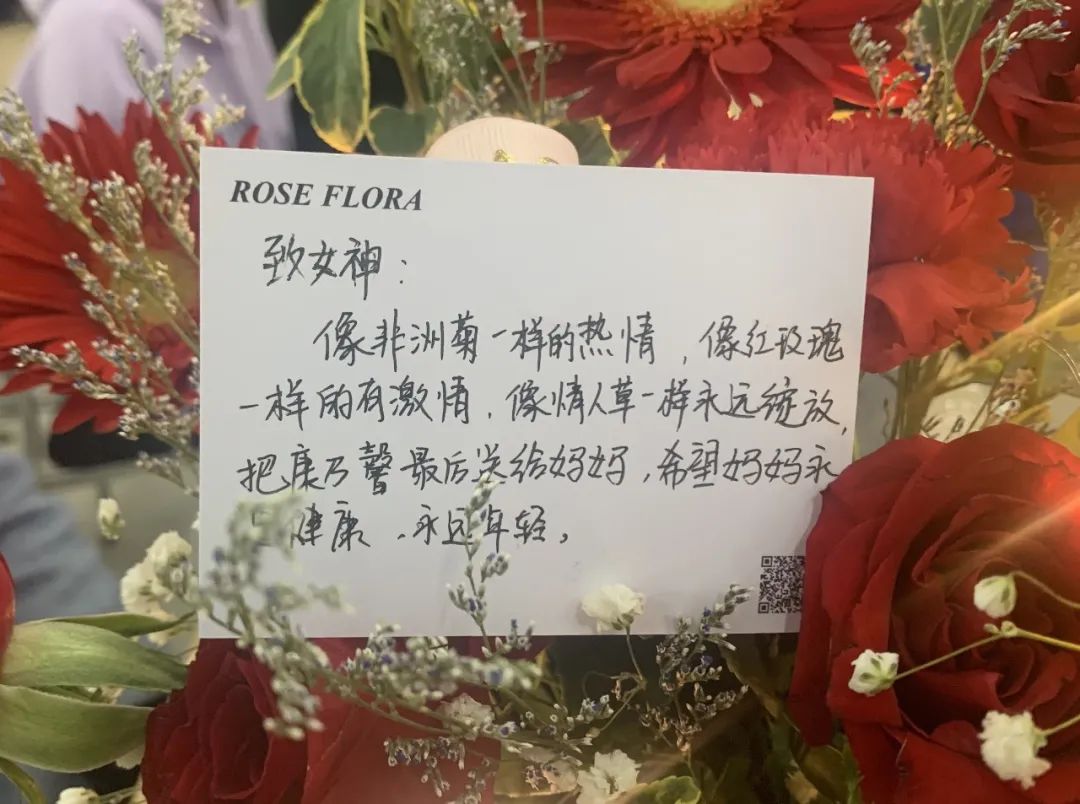 ROSE FLORA
致女神：
像非洲菊一样的热情，像红玫瑰
一样的有激情，像情人草一样永远绽放，
把康乃馨最后送给妈妈，希望妈妈永
健康，永远年轻。